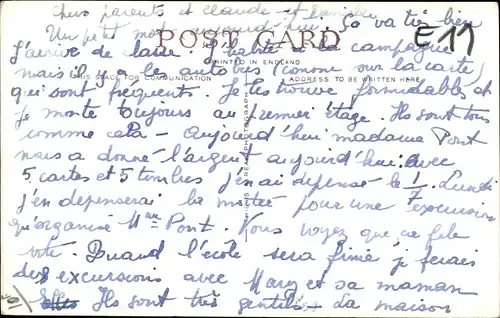 Chers parents et claude et
Un p'tit mot aujourd'hui. Ça va très bien
E 11
POST CARD
J'arrive de . J'habite à la campagne
PRINTED IN ENGLAND
mais il y a les autobus (comme sur la carte)
THIS SPACE FOR COMMUNICATION ADDRESS TO BE WRITTEN HERE
qui sont fréquents. Je les trouve formidables et
je monte toujours au premier étage. Ils sont tous
comme cela - aujourd'hui madame Pont
nous a donné l'argent aujourd'hui avec
5 cartes et 5 timbres j'en ai dépensé le 1/7. Lundi
j'en dépenserai la moitié pour une excursion
qu'organise Mme Pont. Vous voyez que ça file
vite. Quand l'école sera finie je ferais
des excursions avec Mary et sa maman
Ils sont très gentils - La maison